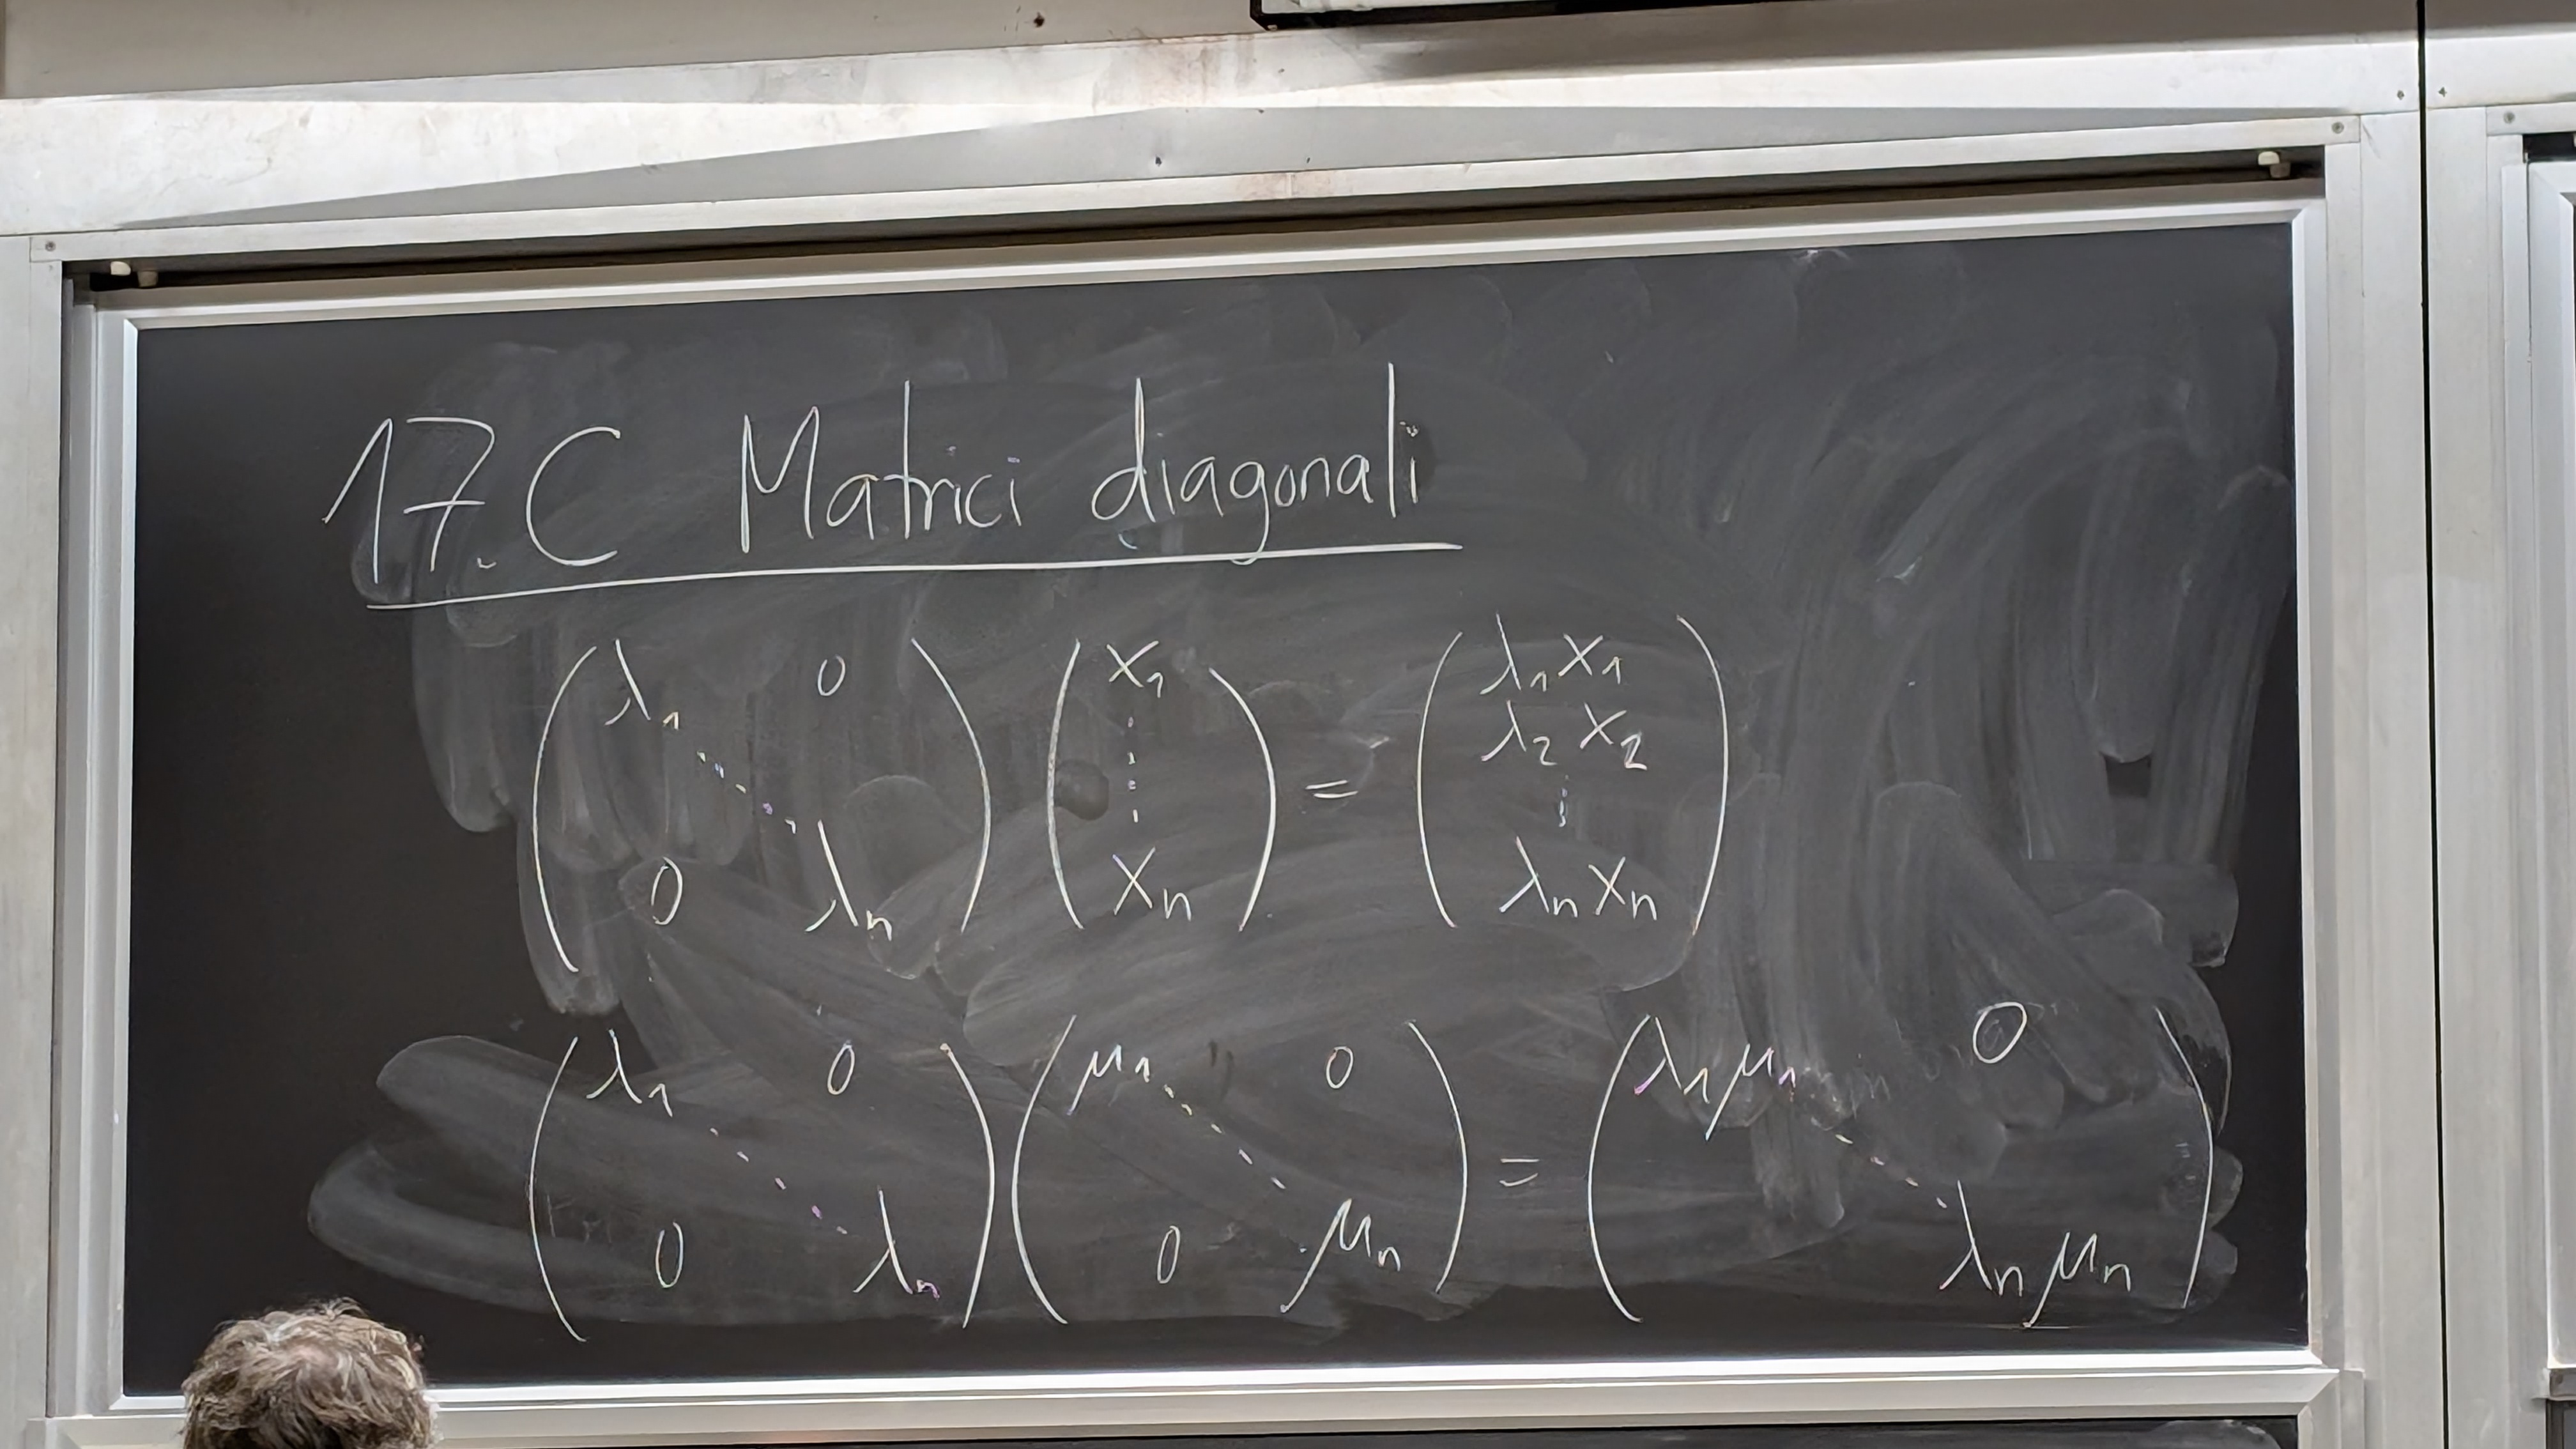 17.C Matrici diagonali
( λ₁ ⋱ λₙ, 0, 0 ) ( x₁ ⋮ xₙ ) = ( λ₁x₁ λ₂x₂ ⋮ λₙxₙ )
( λ₁ 0 ⋱ 0 λₙ ) ( μ₁ 0 ⋱ 0 μₙ ) = ( λ₁μ₁ 0 ⋱ λₙμₙ )